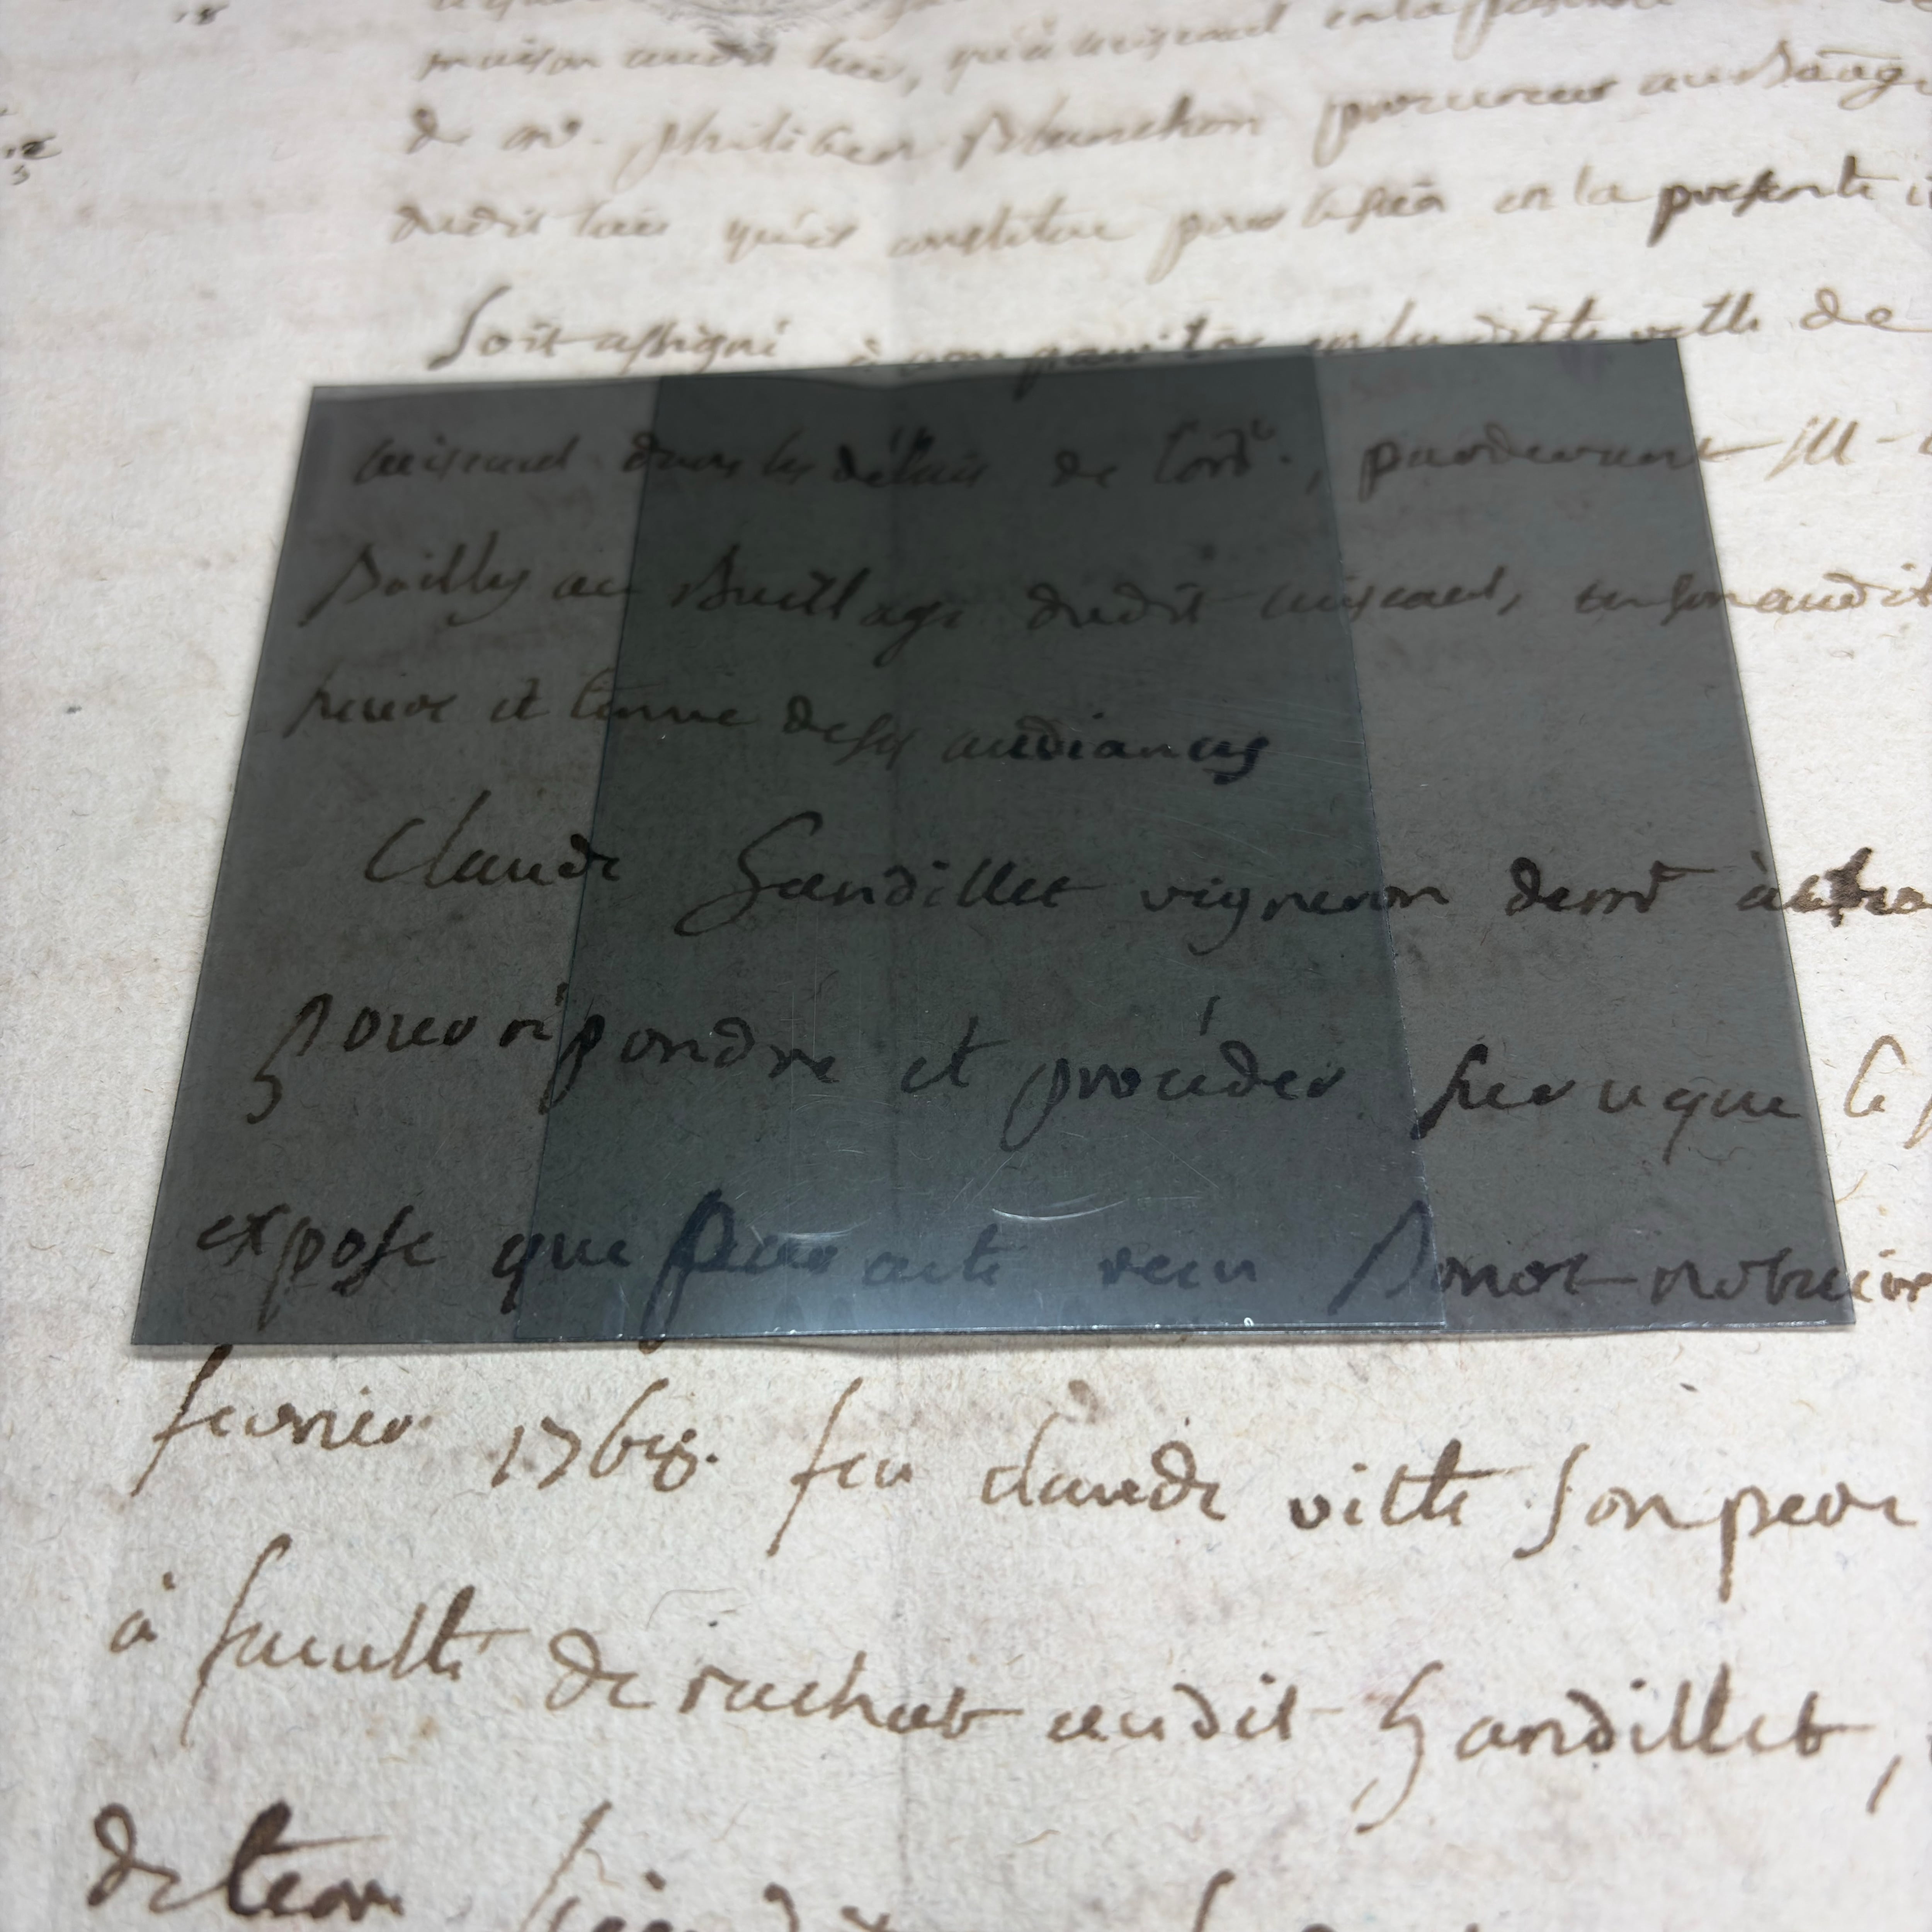 maison audit lieu, qui a cuiseaul en la
de me. philiber Blanchon procureur au Bailliage
dudit lieu qu'il constitue pour la sien en la presente
Soit assigné à en la ditte ville de
cuiseaul dans les délais de l'ord.ce, pardevant M
Bailly au Bailliage dudit cuiseaul, en son audit
heure et tenue desses audiances
Claude Gandillet vigneron demt à
pour répondre et procéder sur ce que le
expose que par acte recu Donot notaire
fevrier 1768. feu claude vitte son pere
à faculté de rachat audit Gandillet,
de